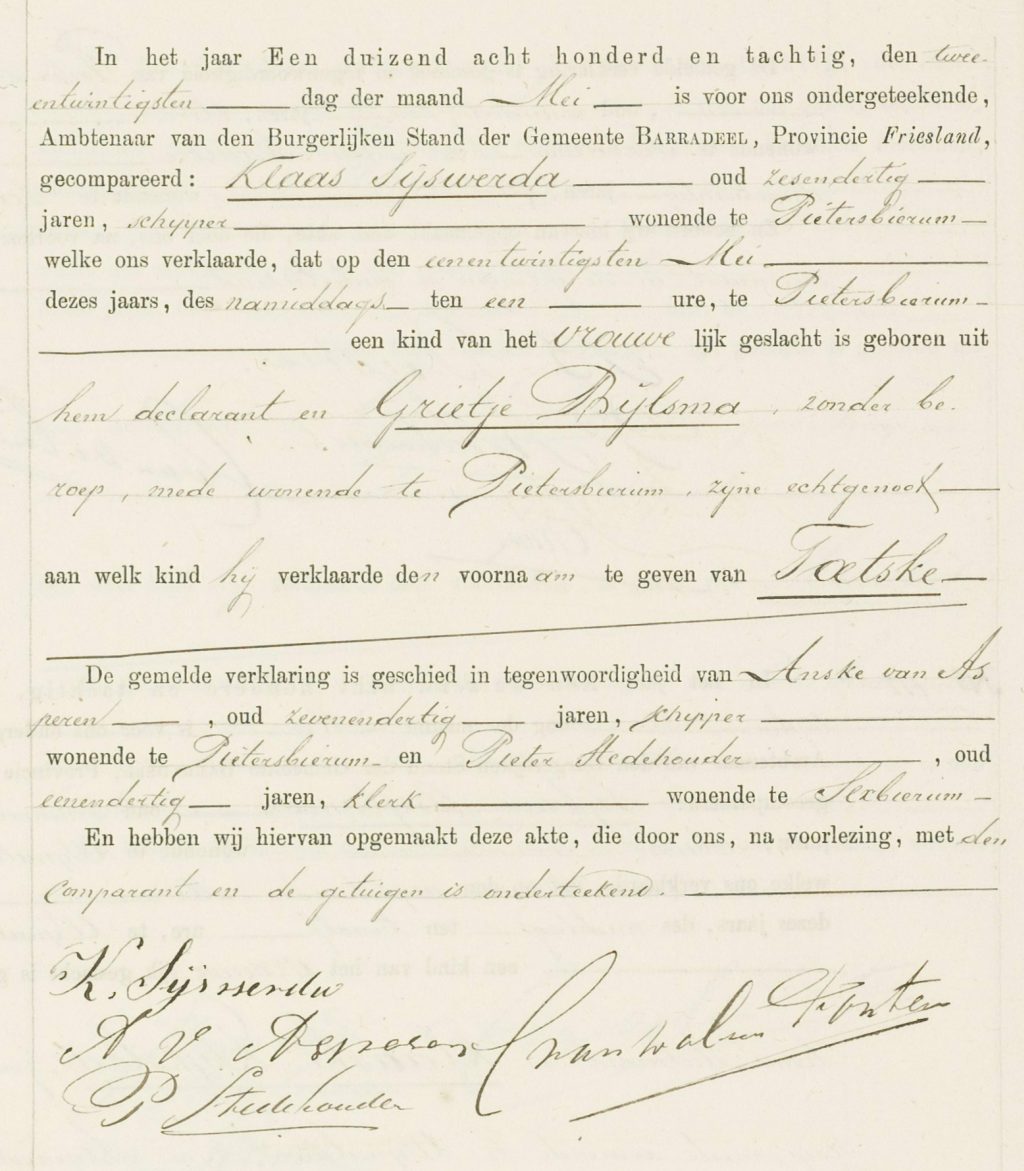 In het jaar Een duizend acht honderd en tachtig, den twee-
entwintigsten dag der maand Mei is voor ons ondergeteekende,
Ambtenaar van den Burgerlijken Stand der Gemeente BARRADEEL, Provincie Friesland,
gecompareerd: Klaas Sijswerda oud zesendertig
jaren, schipper wonende te Pietersbierum
welke ons verklaarde, dat op den eenentwintigsten Mei
dezes jaars, des namiddags ten een ure, te Pietersbierum
een kind van het vrouwe lijk geslacht is geboren uit
hem declarant en Grietje Bijlsma, zonder be-
roep, mede wonende te Pietersbierum, zijne echtgenoot
aan welk kind hij verklaarde den voornaam te geven van Tætske
De gemelde verklaring is geschied in tegenwoordigheid van Anske van As
peren, oud zevenendertig jaren, schipper
wonende te Pietersbierum en Pieter Stedehouder, oud
eenendertig jaren, klerk wonende te Sexbierum
En hebben wij hiervan opgemaakt deze akte, die door ons, na voorlezing, met den
comparant en de getuigen is onderteekend.
K. Sijswerda
A v Asperen
P Stedehouder